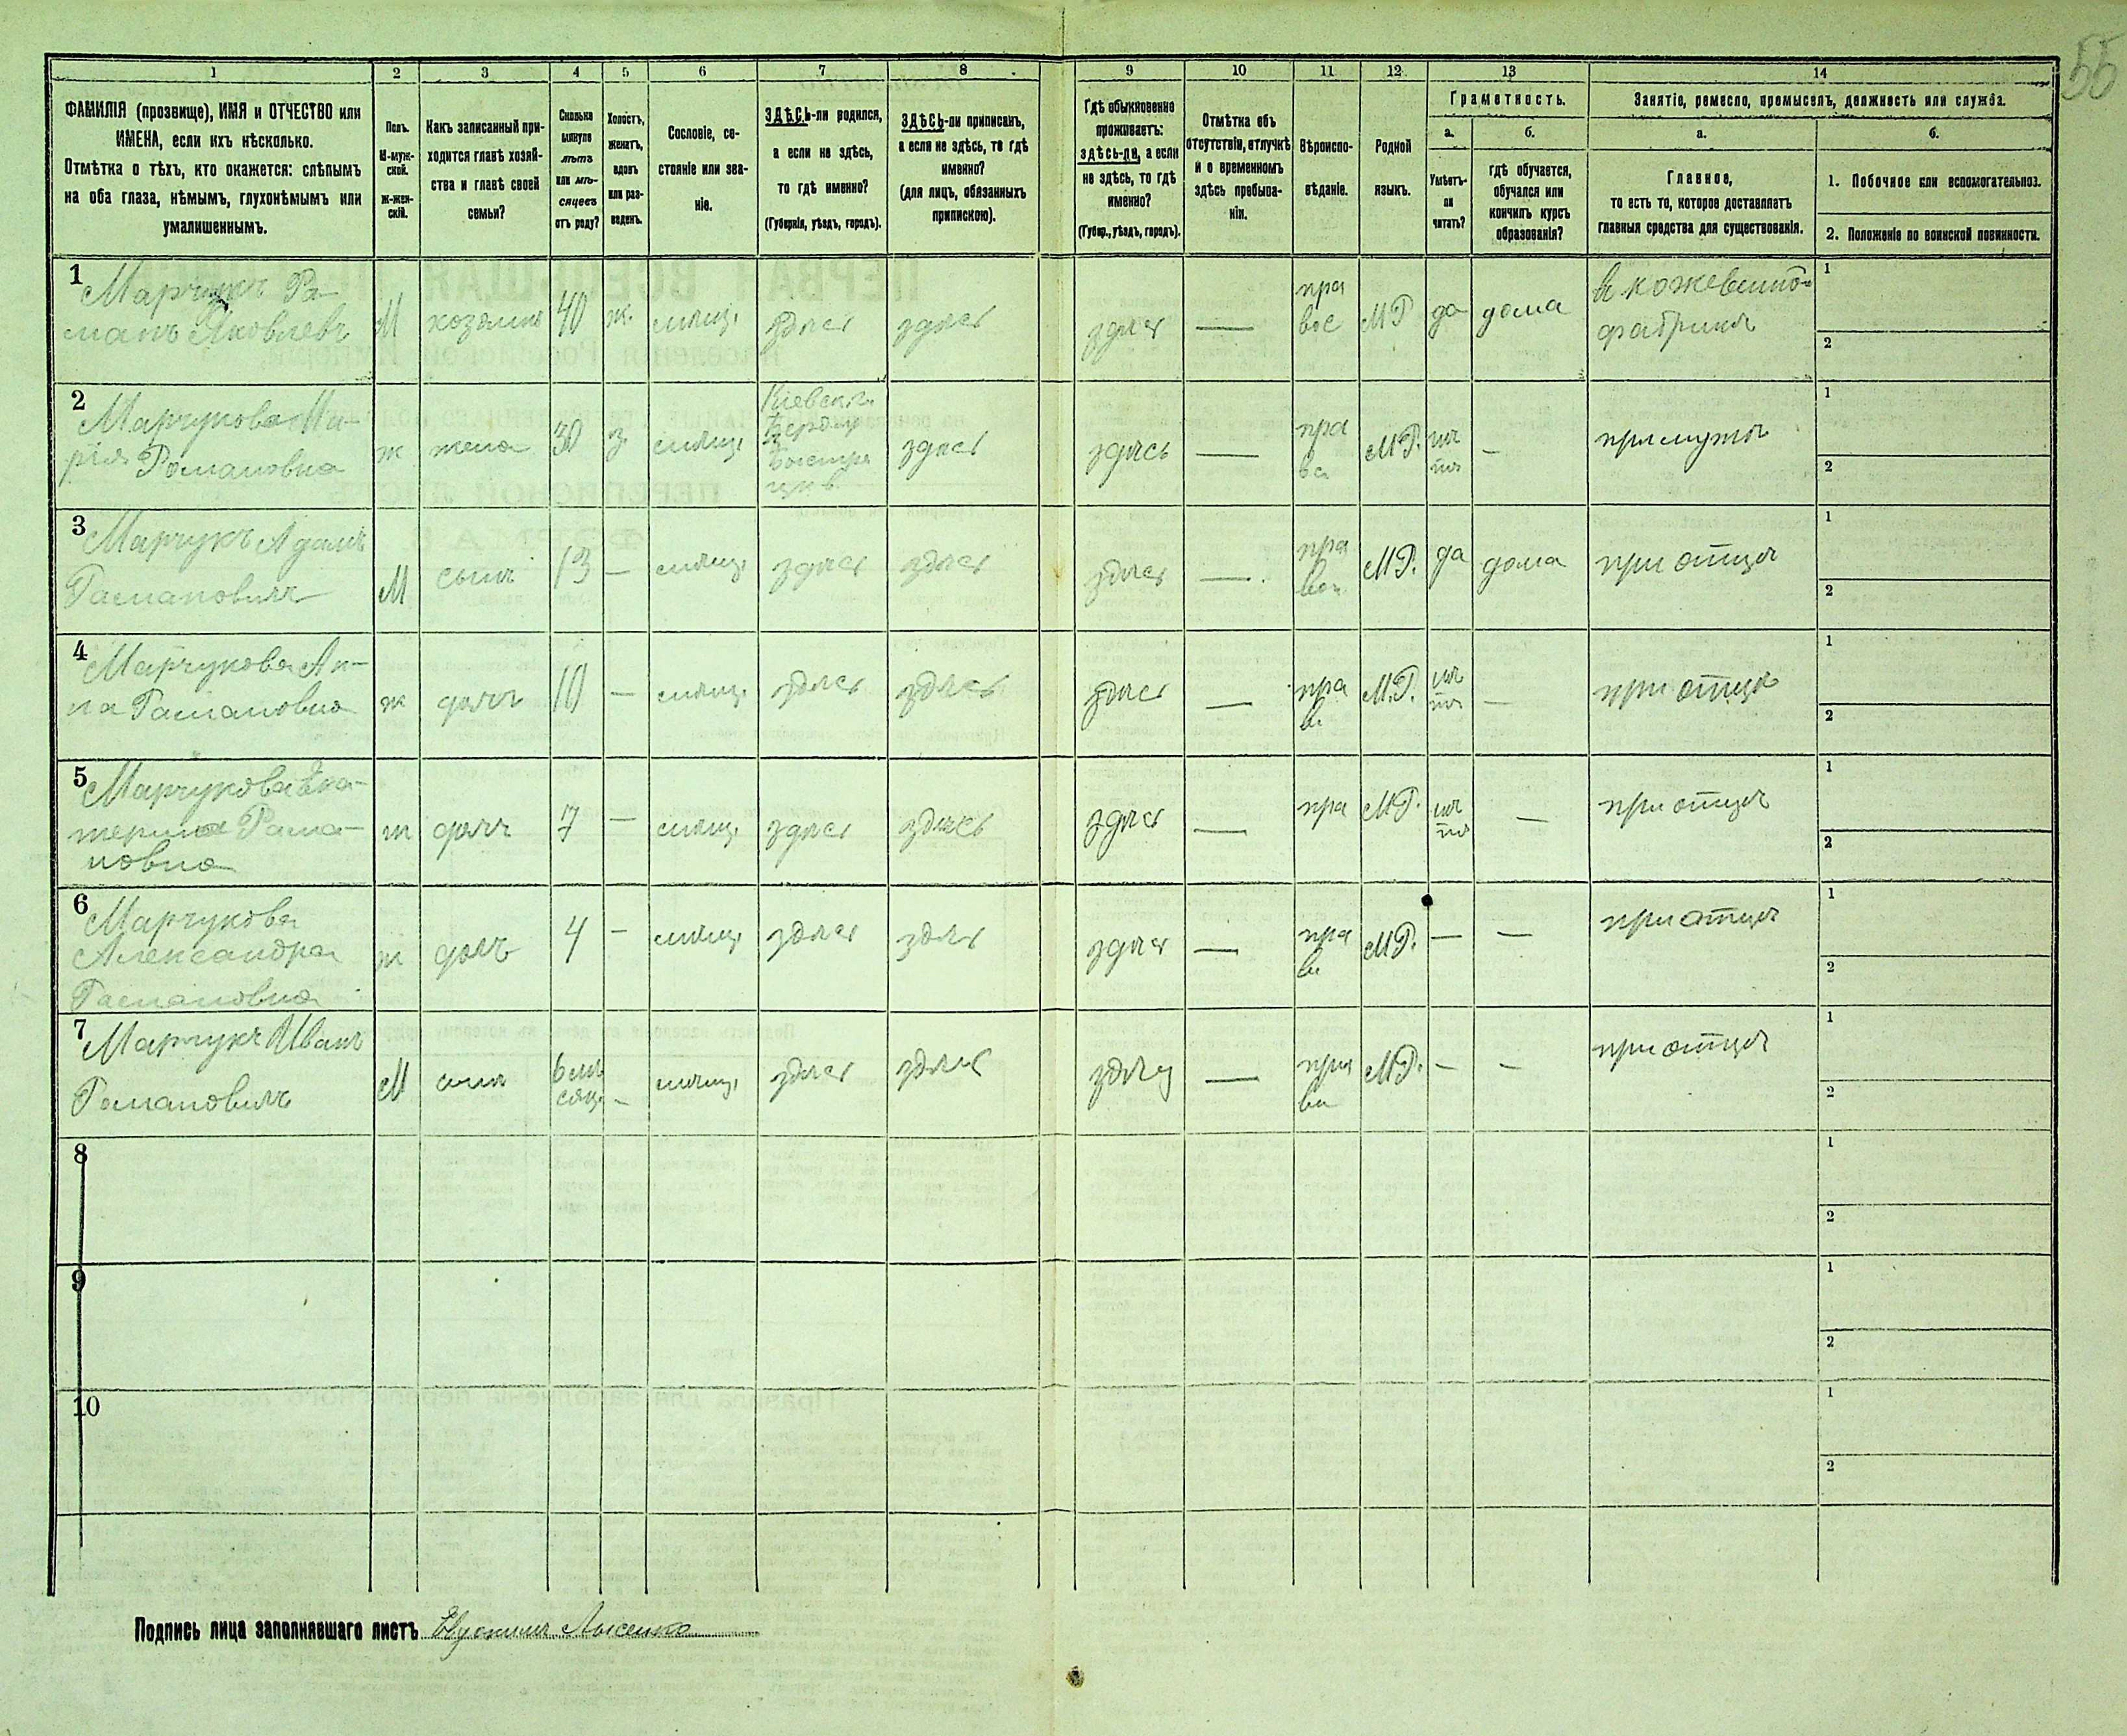 55
1 2 3 4 5 6 7 8 9 10 11 12 13 14
ФАМИЛІЯ (прозвище), ИМЯ и ОТЧЕСТВО или
ИМЕНА, если ихъ нѣсколько.
Отмѣтка о тѣхъ, кто окажется: слѣпымъ
на оба глаза, нѣмымъ, глухонѣмымъ или
умалишеннымъ.
Полъ.
М-муж-
ской.
Ж-жен-
скій.
Какъ записанный при-
ходится главѣ хозяй-
ства и главѣ своей
семьи?
Сколько
минуло
лѣтъ
или мѣ-
сяцевъ
отъ роду?
Холостъ,
женатъ,
вдовъ
или раз-
веденъ.
Сословіе, со-
стояніе или зва-
ніе.
ЗДѢСЬ-ли родился,
а если не здѣсь,
то гдѣ именно?
(Губернія, уѣздъ, городъ).
ЗДѢСЬ-ли приписанъ,
а если не здѣсь, то гдѣ
именно?
(для лицъ, обязанныхъ
припискою).
Гдѣ обыкновенно
проживаетъ:
здѣсь-ли, а если
не здѣсь, то гдѣ
именно?
(Губер., уѣздъ, городъ).
Отмѣтка объ
отсутствіи, отлучкѣ
и о временномъ
здѣсь пребыва-
ніи.
Вѣроиспо-
вѣданіе.
Родной
языкъ.
Грамотность.
а.
Умѣетъ-
ли
читать?
б.
гдѣ обучается,
обучался или
кончилъ курсъ
образованія?
Занятіе, ремесло, промыселъ, должность или служба.
а.
Главное,
то есть то, которое доставляетъ
главныя средства для существованія.
б.
1. Побочное или вспомогательное.
2. Положеніе по воинской повинности.
1
Марчукъ Ра-
манъ Яковлевъ
М
хозяинъ
40
ж.
мѣщ.
здѣсь
здѣсь
здѣсь
—
пра
вос
МР
да
дома
В кожевенно-
фабрикѣ
1
2
2
Марчукова Ма-
рія Романовна
ж
жена
30
з.
мѣщ.
Кіевск. г.
Берд. у
здѣсь
здѣсь
—
пра
ва
М.Р.
нѣ
тъ
—
при мужѣ
1
2
3
Марчукъ Адамъ
Рамановичъ
М
сынъ
13
—
мѣщ.
здѣсь
здѣсь
здѣсь
—
пра
вос
М.Р.
да
дома
при отцѣ
1
2
4
Марчукова Ан-
на Рамановна
ж
дочъ
10
—
мѣщ.
здѣсь
здѣсь
здѣсь
—
пра
в
М.Р.
нѣ
тъ
—
при отцѣ
1
2
5
Марчукова Ека-
терина Рама-
новна
ж
дочъ
7
—
мѣщ.
здѣсь
здѣсь
здѣсь
—
пра
М.Р.
нѣ
тъ
—
при отцѣ
1
2
6
Марчукова
Александра
Рамановна
ж
дочъ
4
—
мѣщ.
здѣсь
здѣсь
здѣсь
—
пра
в
М.Р.
—
—
при отцѣ
1
2
7
Марчукъ Иванъ
Романовичъ
М
сынъ
6 мѣ
сяц.
—
мѣщ.
здѣсь
здѣсь
здѣсь
—
пра
ва
М.Р.
—
—
при отцѣ
1
2
8
1
2
9
1
2
10
1
2
Подпись лица заполнявшаго листъ Лысенко